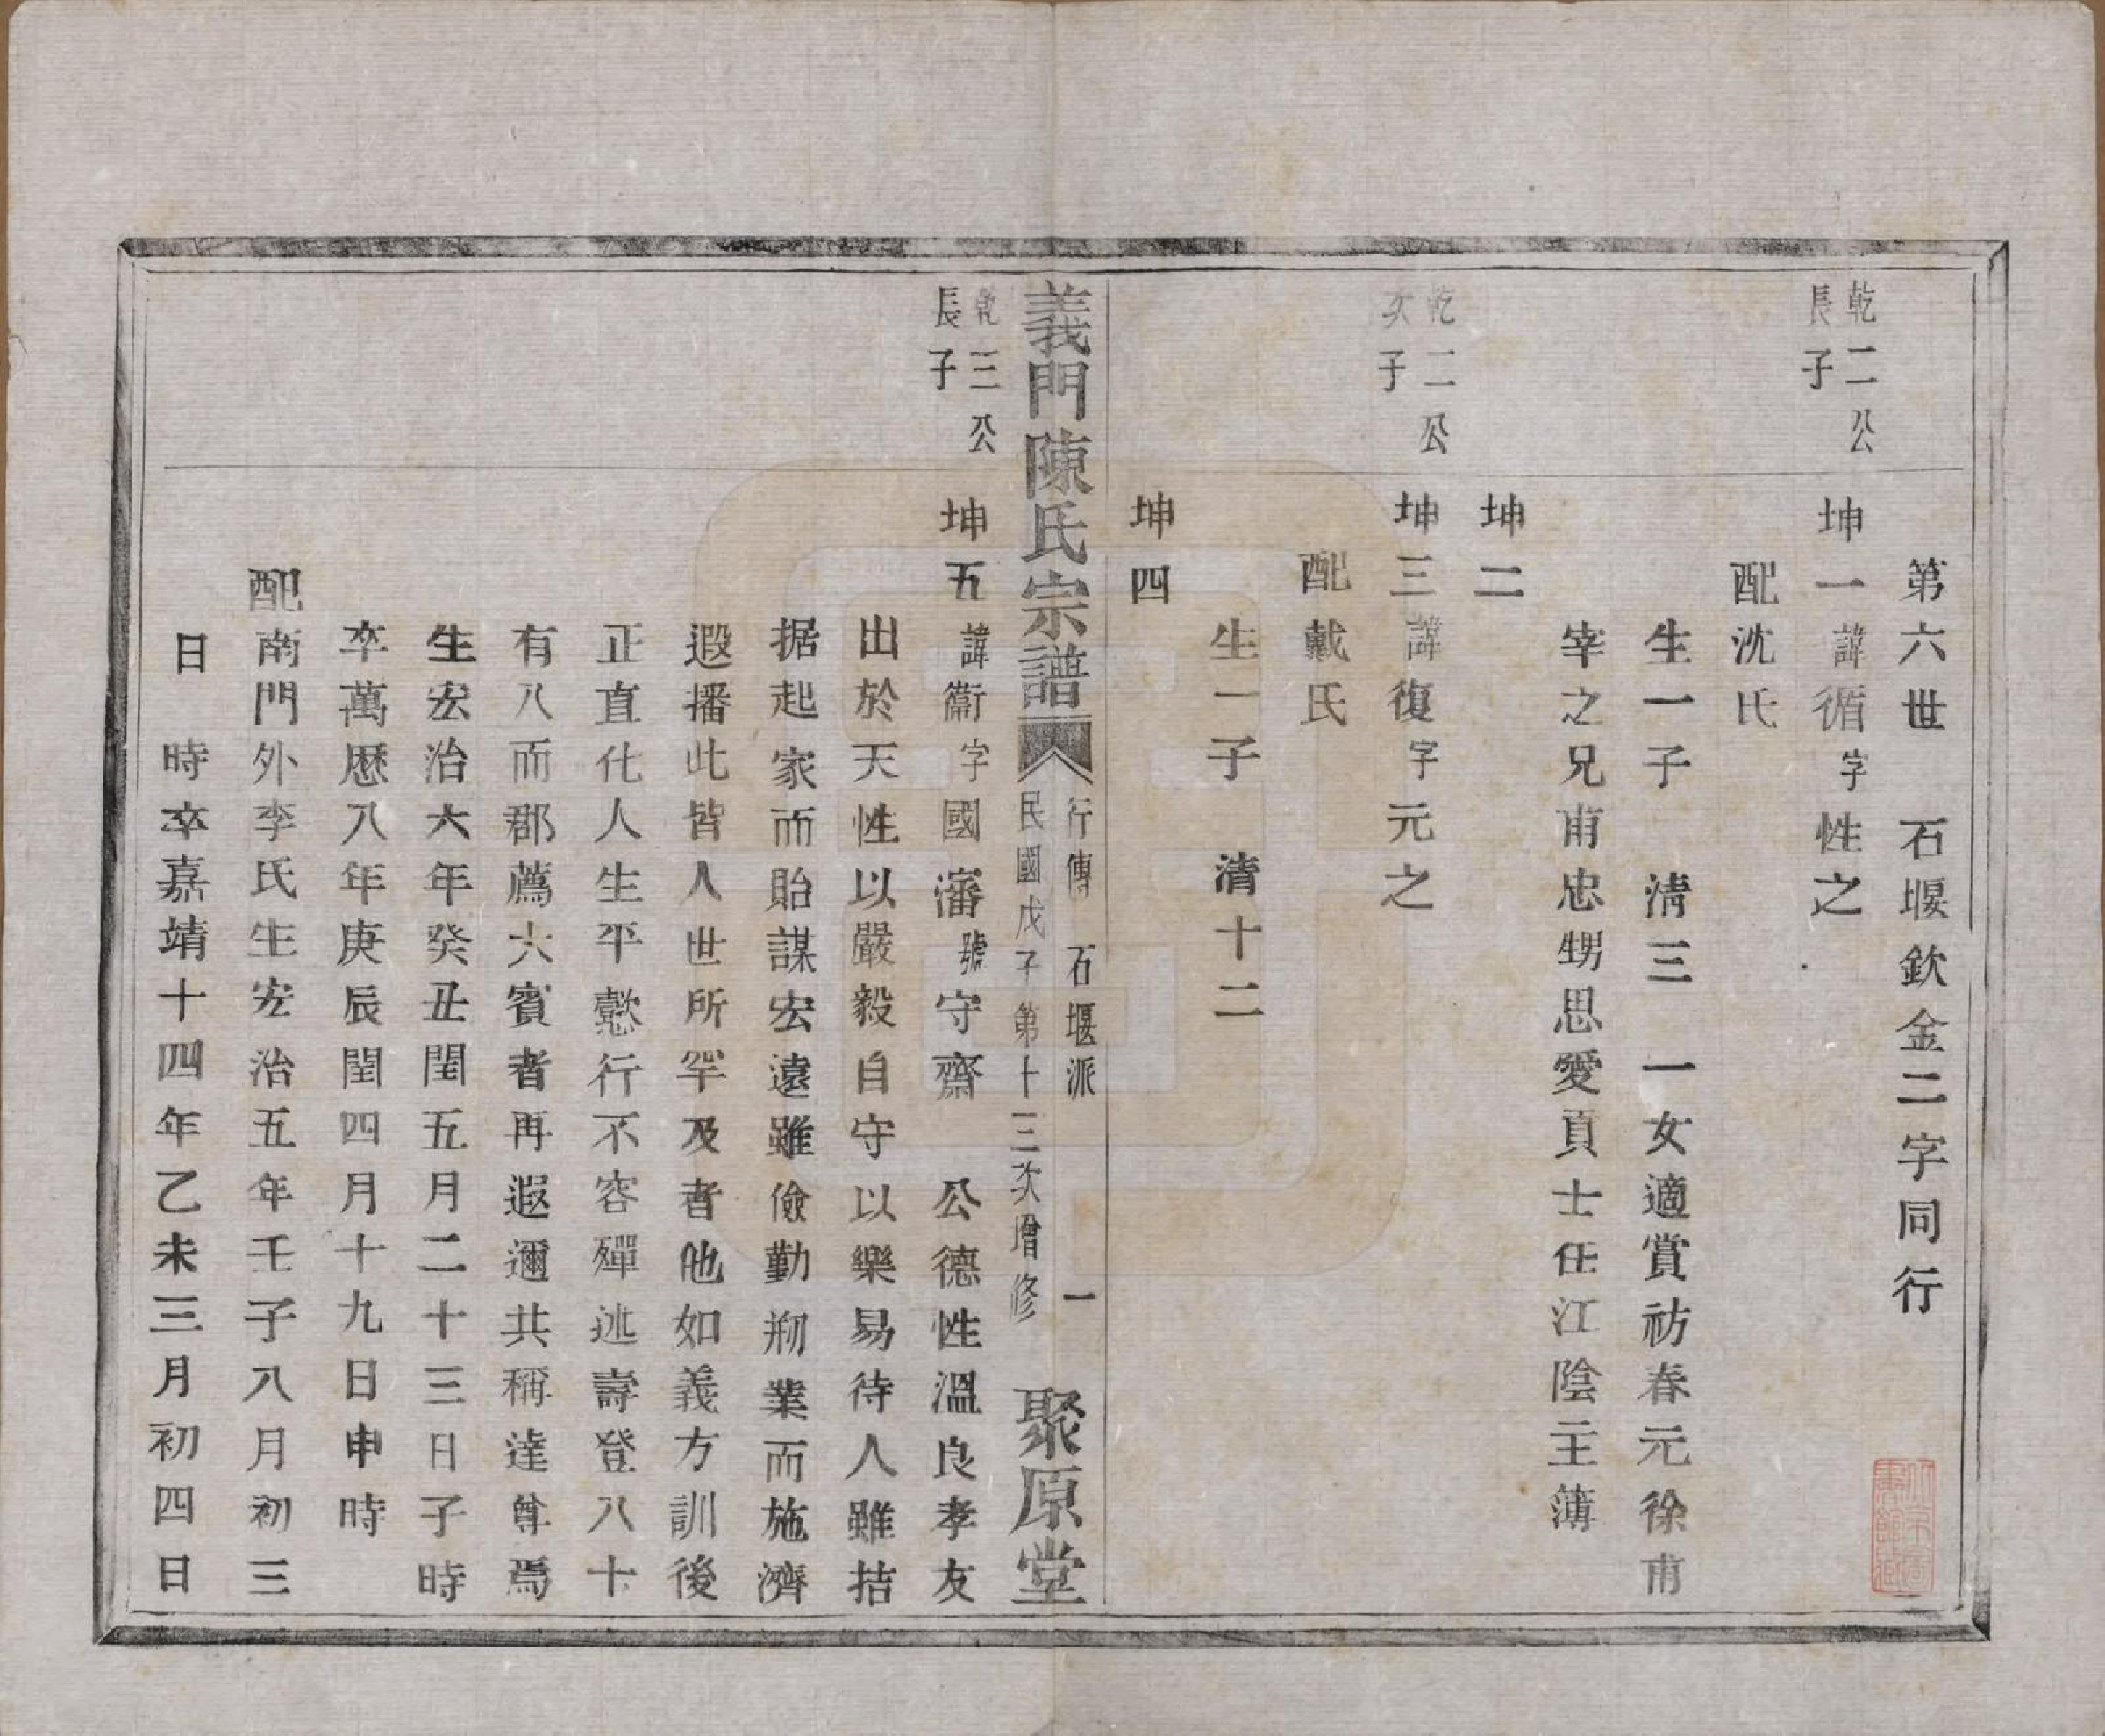 第六世　石堰欽金二字同行
乾二公
長子
坤一諱循字性之
配沈氏
生一子　淸三　一女適賞祊春元徐甫
宰之兄甫忠甥思愛頁士任江陰主薄
坤二
乾二公
次子
坤三諱復字元之
配戴氏
生一子　清十二
坤四
義門陳氏宗譜
行傳　石堰派　一
民國戊子第十三次增修
聚原堂
乾三公
長子
坤五諱衞字國瀋號守齋　公德性溫良孝友
出於天性以嚴毅自守以樂易待人雖拮
据起家而貽謀宏遠雖儉勤剏業而施濟
遐播此皆人世所罕及者他如義方訓後
正直化人生平懿行不容殫述壽登八十
有八而郡薦六賓者再遐邇共稱達尊焉
生宏治六年癸丑閏五月二十三日子時
卒萬歷八年庚辰閏四月十九日申時
配南門外李氏生宏治五年壬子八月初三
日　時卒嘉靖十四年乙未三月初四日